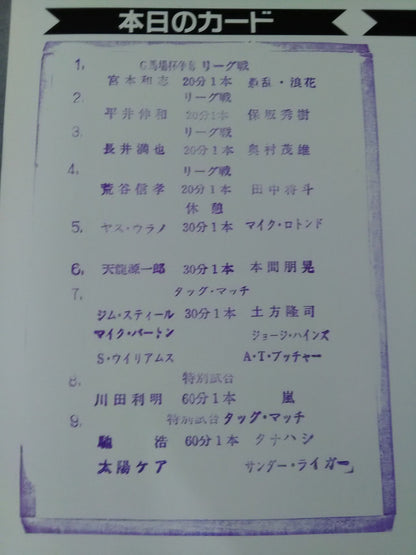 本日のカード
1, リーグ戦
宮本和志 20分1本 ・浪花
2, リーグ戦
平井伸和 20分1本 保坂秀樹
3, リーグ戦
長井満也 20分1本 奥村茂雄
4, リーグ戦
荒谷信孝 20分1本 田中将斗
休憩
5, ヤス・ウラノ 30分1本 マイク・ロトンド
6, 天龍源一郎 30分1本 本間朋晃
7, タッグ・マッチ
ジム・スティール 30分1本 土方隆司
マイク・バートン ジョージ・ハインズ
S・ウイリアムス A・T・ブッチャー
8, 特別試合
川田利明 60分1本 嵐
9, 特別試合タッグ・マッチ
馳 浩 60分1本 タナハシ
太陽ケア サンダー・ライガー